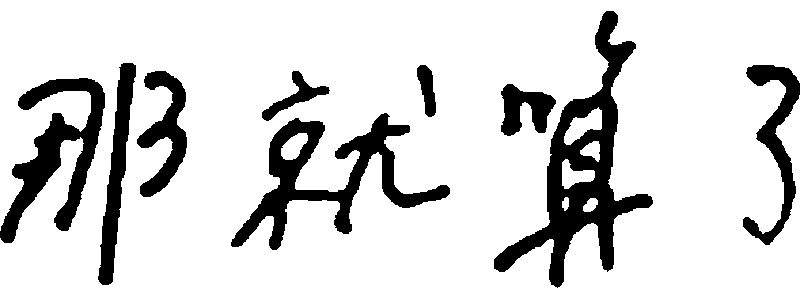 那就算了